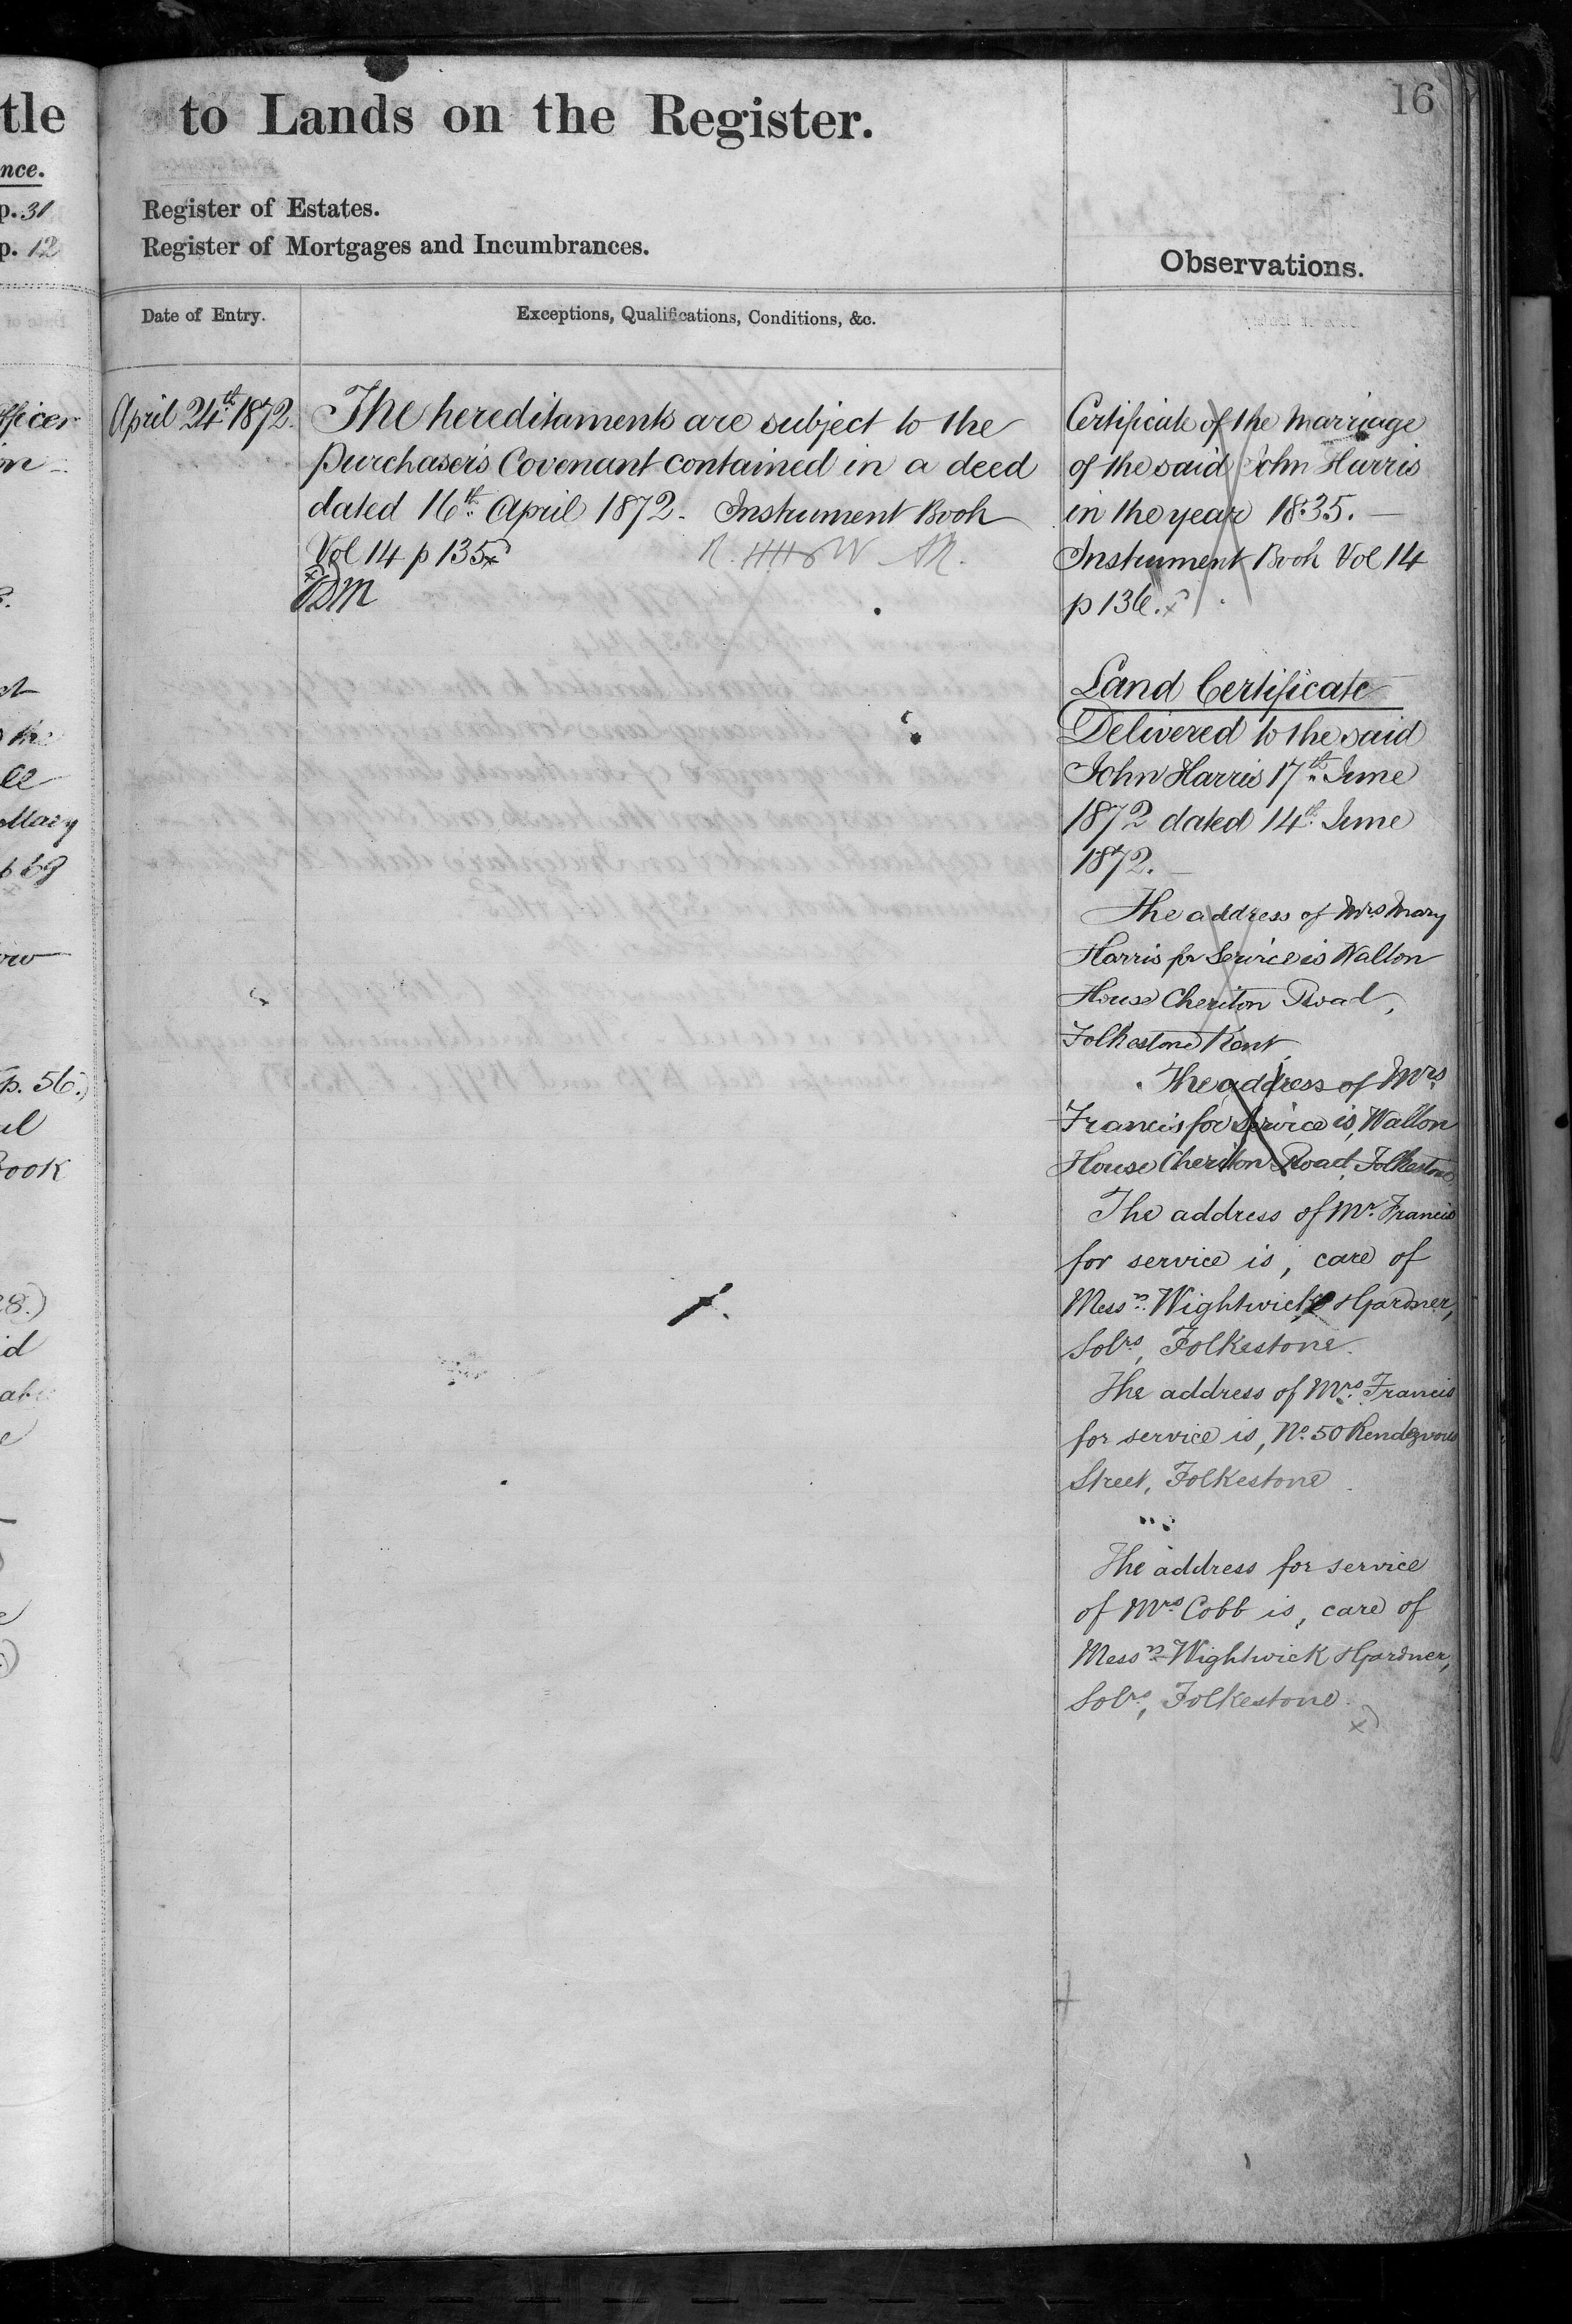 tle
nce.
p. 31
p. 12
fficer
Mary
p. 56.)
Book
28.)
id
16
to Lands on the Register.
Register of Estates.
Register of Mortgages and Incumbrances.
Date of Entry.
Exceptions, Qualifications, Conditions, &c.
April 24th 1872.
The hereditaments are subject to the
purchaser's Covenant contained in a deed
dated 16th April 1872. Instrument Book
Vol 14 p 135
Observations.
Certificate of the Marriage
of the said John Harris
in the year 1835. —
Instrument Book Vol 14
p 136.
Land Certificate
Delivered to the said
John Harris 17th June
1872 dated 14th June
1872. —
The address of Mrs Mary
Harris for Service is Walton
House Cheriton Road,
Folkestone Kent
The address of Mrs
Francis for Service is, Walton
House Cheriton Road, Folkestone.
The address of Mr. Francis
for service is, care of
Messrs. Wightwick & Gardner,
Solrs, Folkestone.
The address of Mrs. Francis
for service is, No. 50 Rendezvous
Street, Folkestone.
The address for service
of Mrs Cobb is, care of
Messrs Wightwick & Gardner,
Solrs, Folkestone.